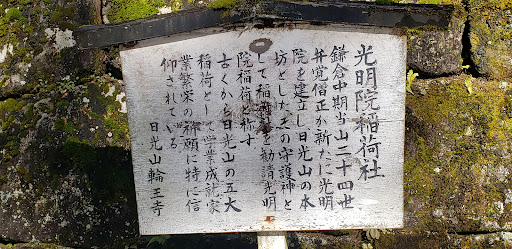 光明院稲荷社
鎌倉中期当山二十四世
弁覚僧正が新たに光明
院を建立し日光山の本
坊とした その守護神と
して稲荷を勧請光明
院稲荷と称す
古くから日光山の五大
稲荷として学業成就家
業繁栄の祈願に特に信
仰されている
日光山輪王寺